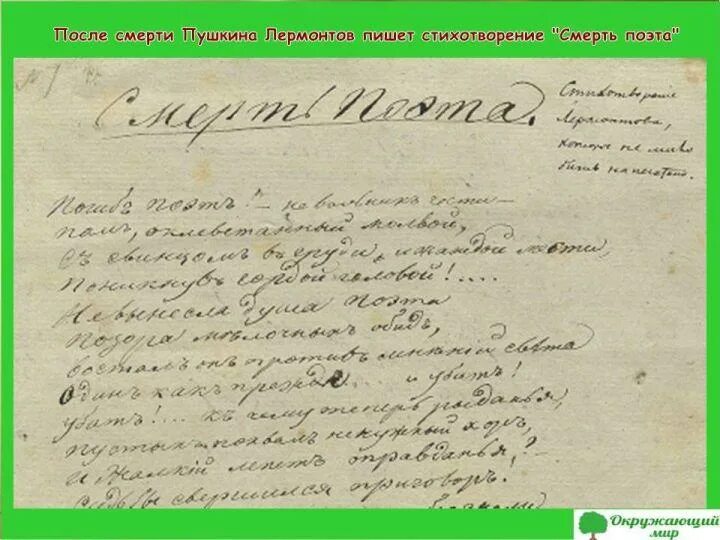 После смерти Пушкина Лермонтов пишет стихотворение "Смерть поэта"
№ 7
Смерть Поэта.
Стихотворение
Лермонтова,
которое не
быть напечатано.
Погибъ поэтъ! – невольникъ чести –
палъ, оклеветанный молвой,
съ свинцомъ въ груди и жаждой мести,
Поникнувъ гордой головой!....
Невынесла душа поэта
позора мѣлочныхъ обидъ,
возсталъ онъ противъ мнѣний свѣта
одинъ какъ прежде... и убитъ!
убитъ!.... къ чему теперь рыданья,
пустыхъ похвалъ ненужный хоръ,
и жалкий лепетъ оправданья?
Судьбы свершился приговоръ.
Окружающий
мир